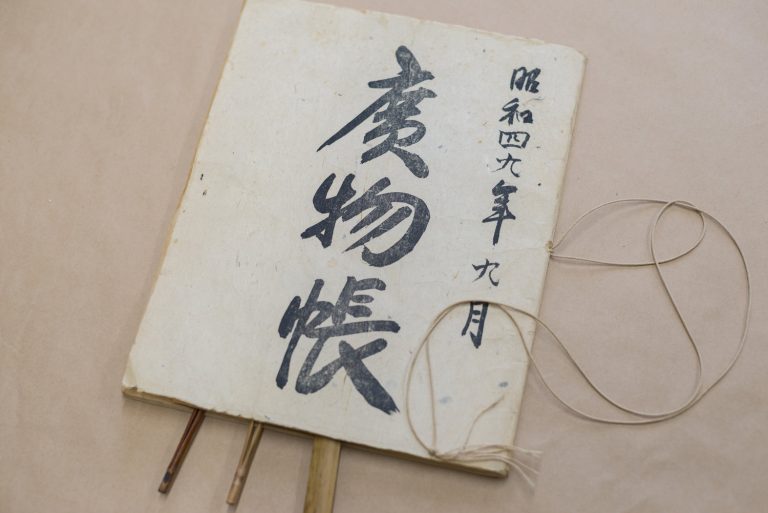 昭和四九年九月
廣物帳